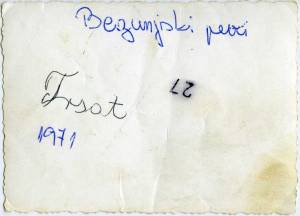 Bezunjski pevci
Trsat
27
1971